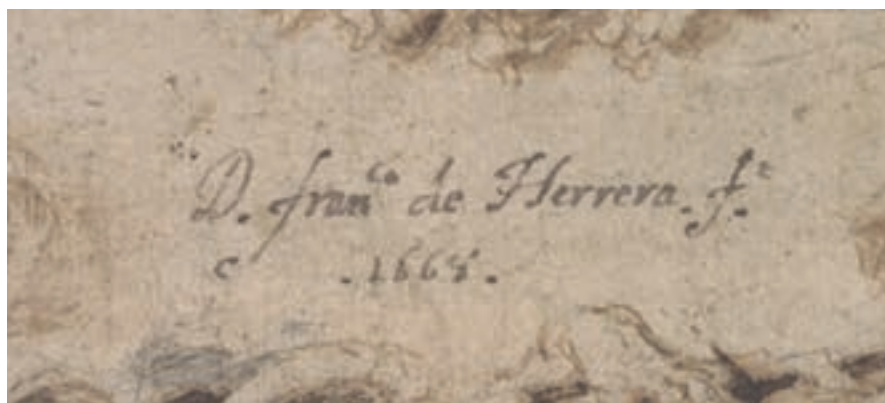 D. fran^co de Herrera. f^e.
.1668.